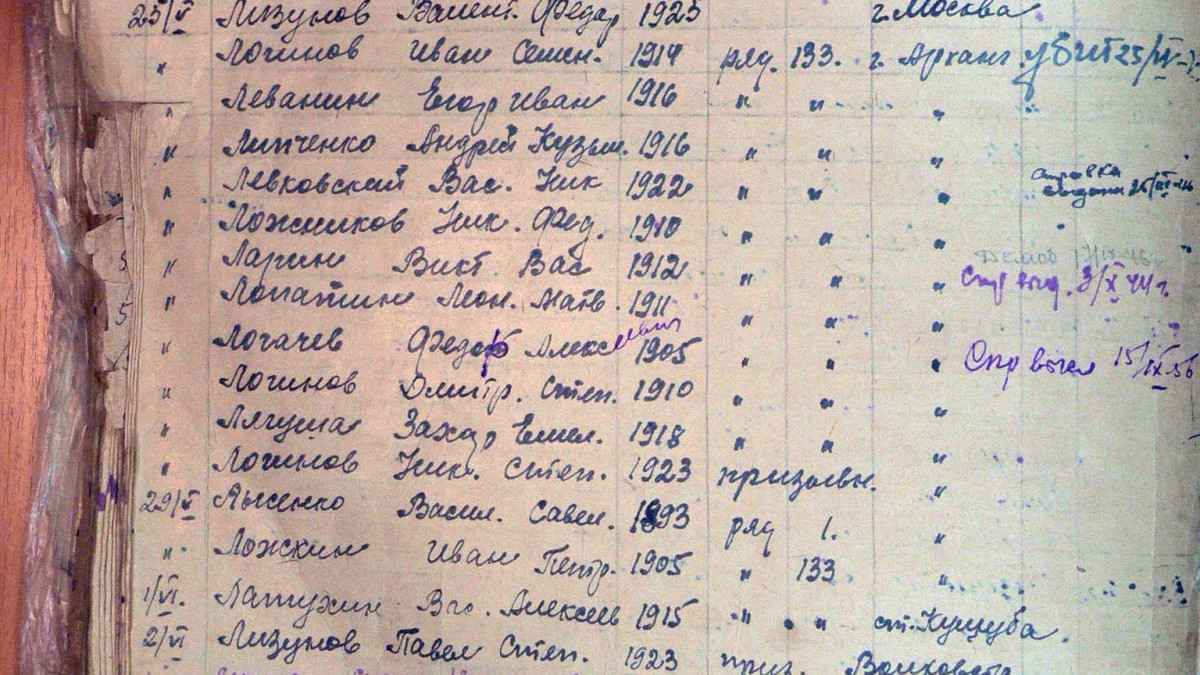 25/V Лизунов Валент. Федор 1923 г. Москва
" Логинов Иван Семен. 1914 ряд. 133. г. Арханг. убит 25/IV
" Леванин Егор Иван 1916 " " "
" Липченко Андрей Кузьм. 1916 " " "
" Левковский Вас. Ник 1922 " " " справка выдана
" Ложников Ник. Фед. 1910 " " "
" Ларин Викт. Вас 1912 " " " Спр выд. 3/X 44 г.
" Лопатин Леон. Матв. 1911 " " "
" Логачев Федор Алексеевич 1905 " " " Спр высл 15/IX-56
" Логинов Дмитр. Степ. 1910 " " "
" Лягуша Захар Емел. 1918 " " "
" Логинов Ник. Степ. 1923 призывн. "
29/V Лысенко Васил. Савел. 1893 ряд 1. "
" Ложкин Иван Петр. 1905 " 133 "
1/VI. Латухин Алексеев 1915 " " ст.
2/VI Лизунов Павел Степ. 1923 приз.